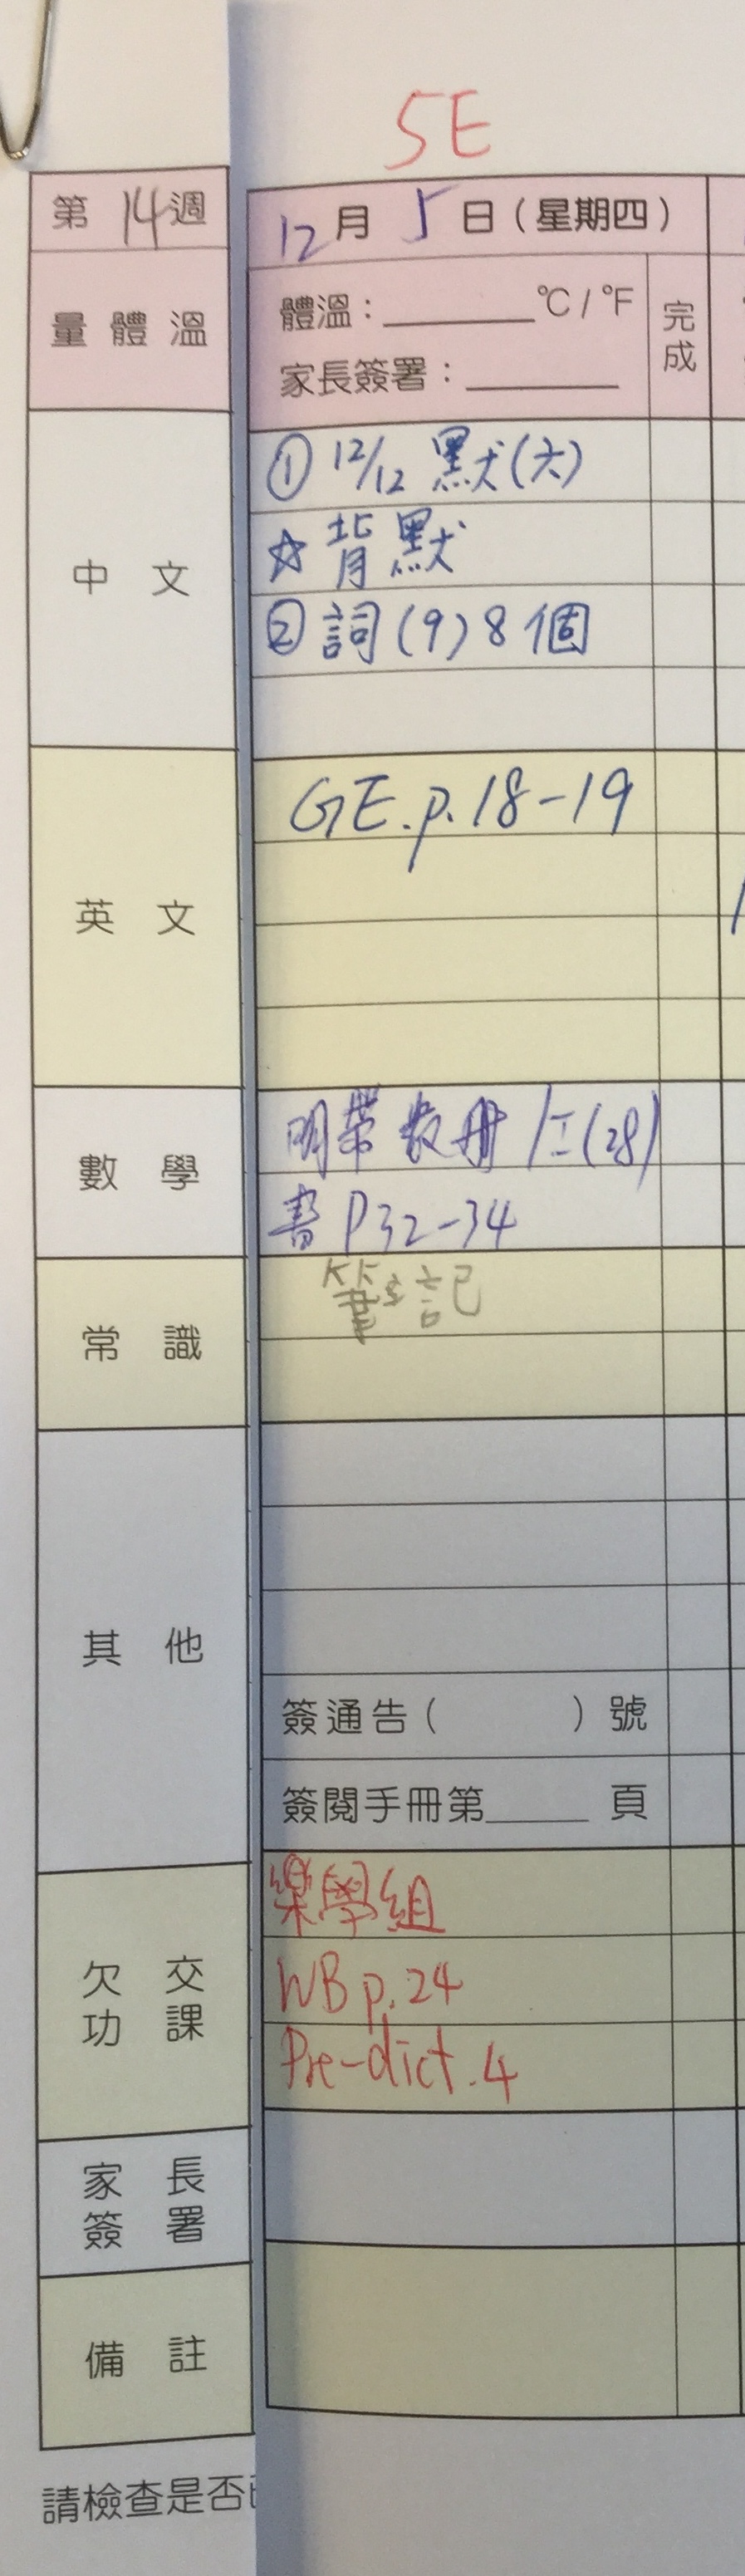 5E
第14週
12月5日(星期四)
量體溫
體溫:______℃/℉
家長簽署:______
完成
中文
① 12/12 默(六)
☆ 背默
② 詞(9)8個
英文
GE.p.18-19
數學
明帶數冊
書P32-34
常識
筆記
其他
簽通告( )號
簽閱手冊第____頁
欠交功課
樂學組
WB p.24
Pre-dict.4
家長簽署
備註
請檢查是否